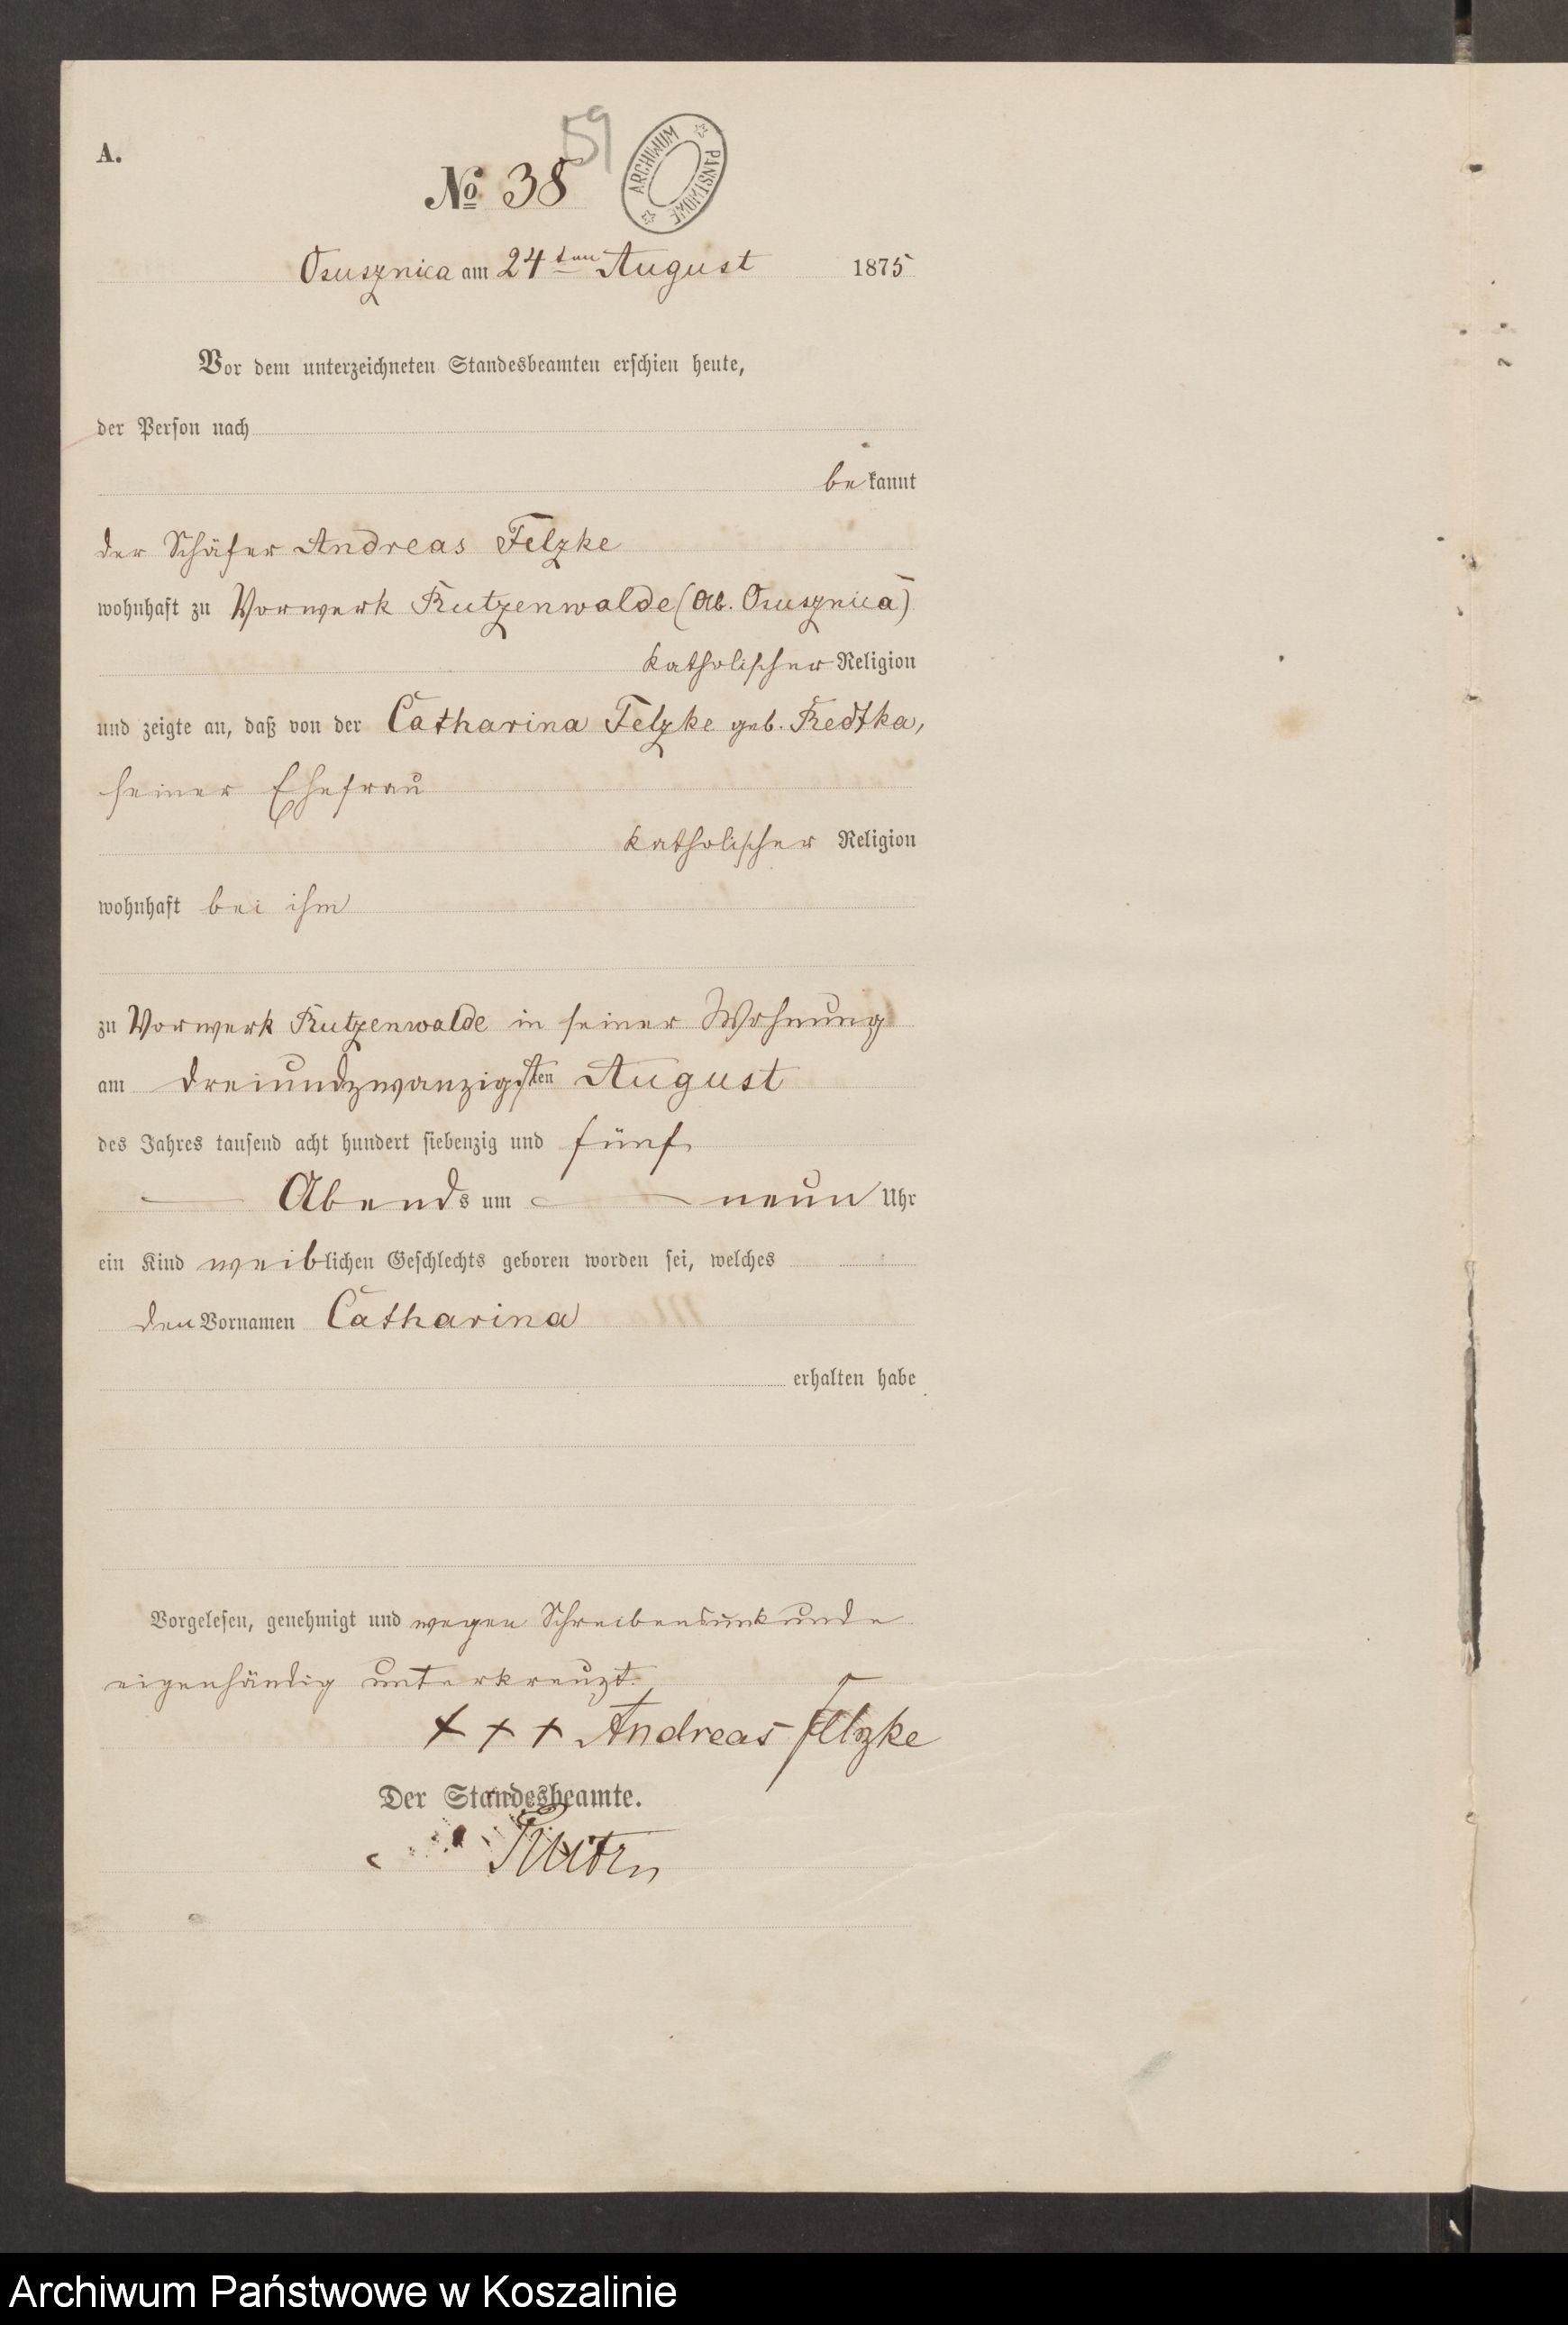 A.
59
№ 38
ARCHIWUM PAŃSTWOWE
Osusznica am 24ten August 1875
Vor dem unterzeichneten Standesbeamten erschien heute,
der Person nach
bekannt
der Schäfer Andreas Felzke
wohnhaft zu Vorwerk Rutzenwalde (Ab. Osusznica)
katholischer Religion
und zeigte an, daß von der Catharina Felzke geb. Redtka,
seiner Ehefrau
katholischer Religion
wohnhaft bei ihm
zu Vorwerk Rutzenwalde in seiner Wohnung
am dreiundzwanzigsten August
des Jahres tausend acht hundert siebenzig und fünf
Abends um neun Uhr
ein Kind weiblichen Geschlechts geboren worden sei, welches
den Vornamen Catharina
erhalten habe
Vorgelesen, genehmigt und wegen Schreibensunkunde
eigenhändig unterkreuzt.
+ + + Andreas Felzke
Der Standesbeamte.
Archiwum Państwowe w Koszalinie